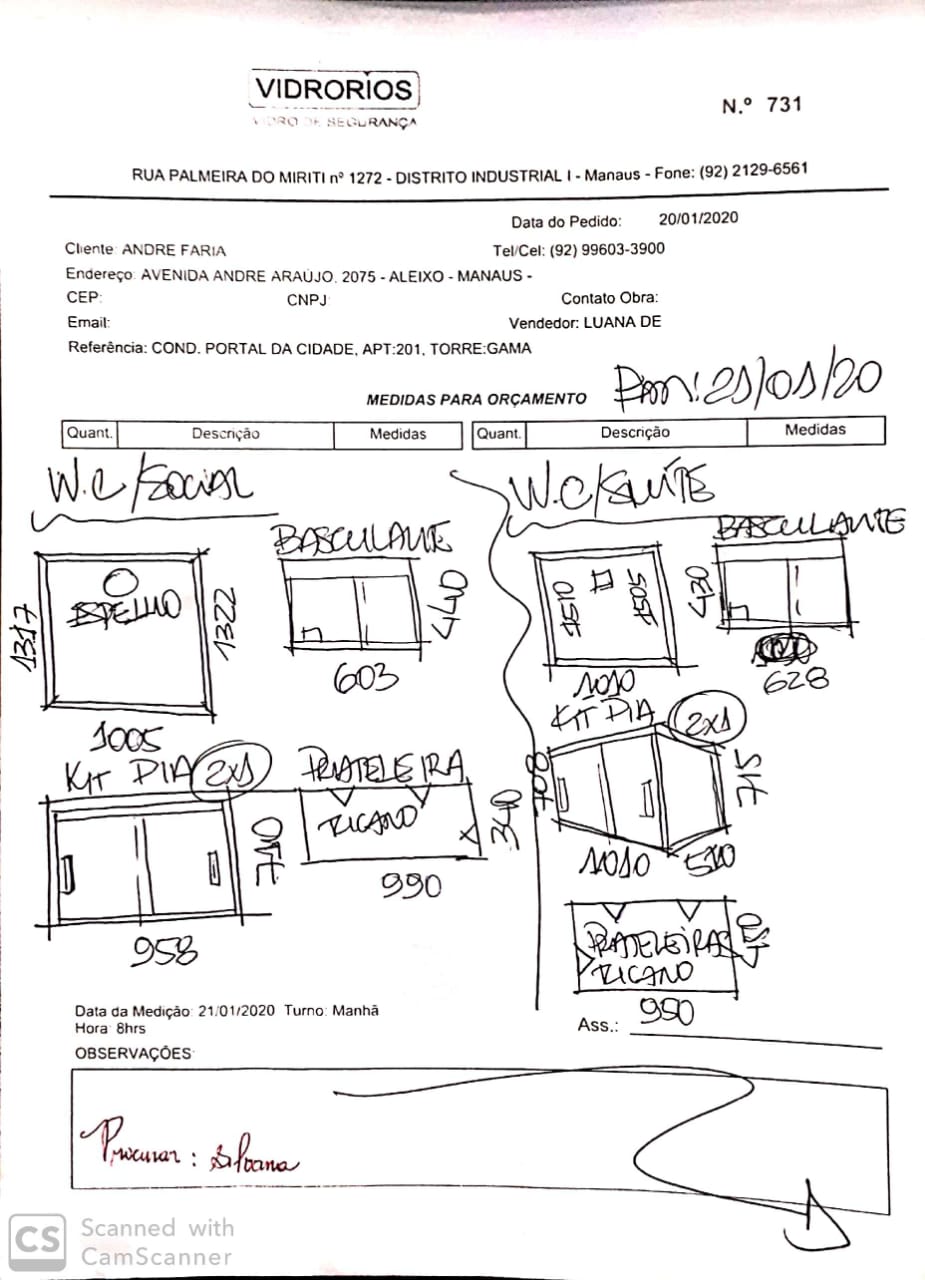 VIDRORIOS
VIDRO DE SEGURANÇA
N.º 731
RUA PALMEIRA DO MIRITI nº 1272 - DISTRITO INDUSTRIAL I - Manaus - Fone: (92) 2129-6561
Data do Pedido: 20/01/2020
Cliente: ANDRE FARIA Tel/Cel: (92) 99603-3900
Endereço: AVENIDA ANDRE ARAÚJO, 2075 - ALEIXO - MANAUS -
CEP: CNPJ: Contato Obra:
Email: Vendedor: LUANA DE
Referência: COND. PORTAL DA CIDADE, APT:201, TORRE:GAMA
MEDIDAS PARA ORÇAMENTO
21/01/20
Quant. Descrição Medidas Quant. Descrição Medidas
W.C/SOCIAL
ESPELHO
1317
1322
1005
BASCULANTE
440
603
KIT PIA 2x1
710
958
PRATELEIRA
RICANO
340
990
W.C/SUÍTE
1510
1505
1010
BASCULANTE
430
628
KIT PIA 2x1
708
715
1010
510
PRATELEIRAS
RICANO
950
Data da Medição: 21/01/2020 Turno: Manhã
Hora: 8hrs
Ass.:
OBSERVAÇÕES:
Procurar: Silvana
CS Scanned with
CamScanner